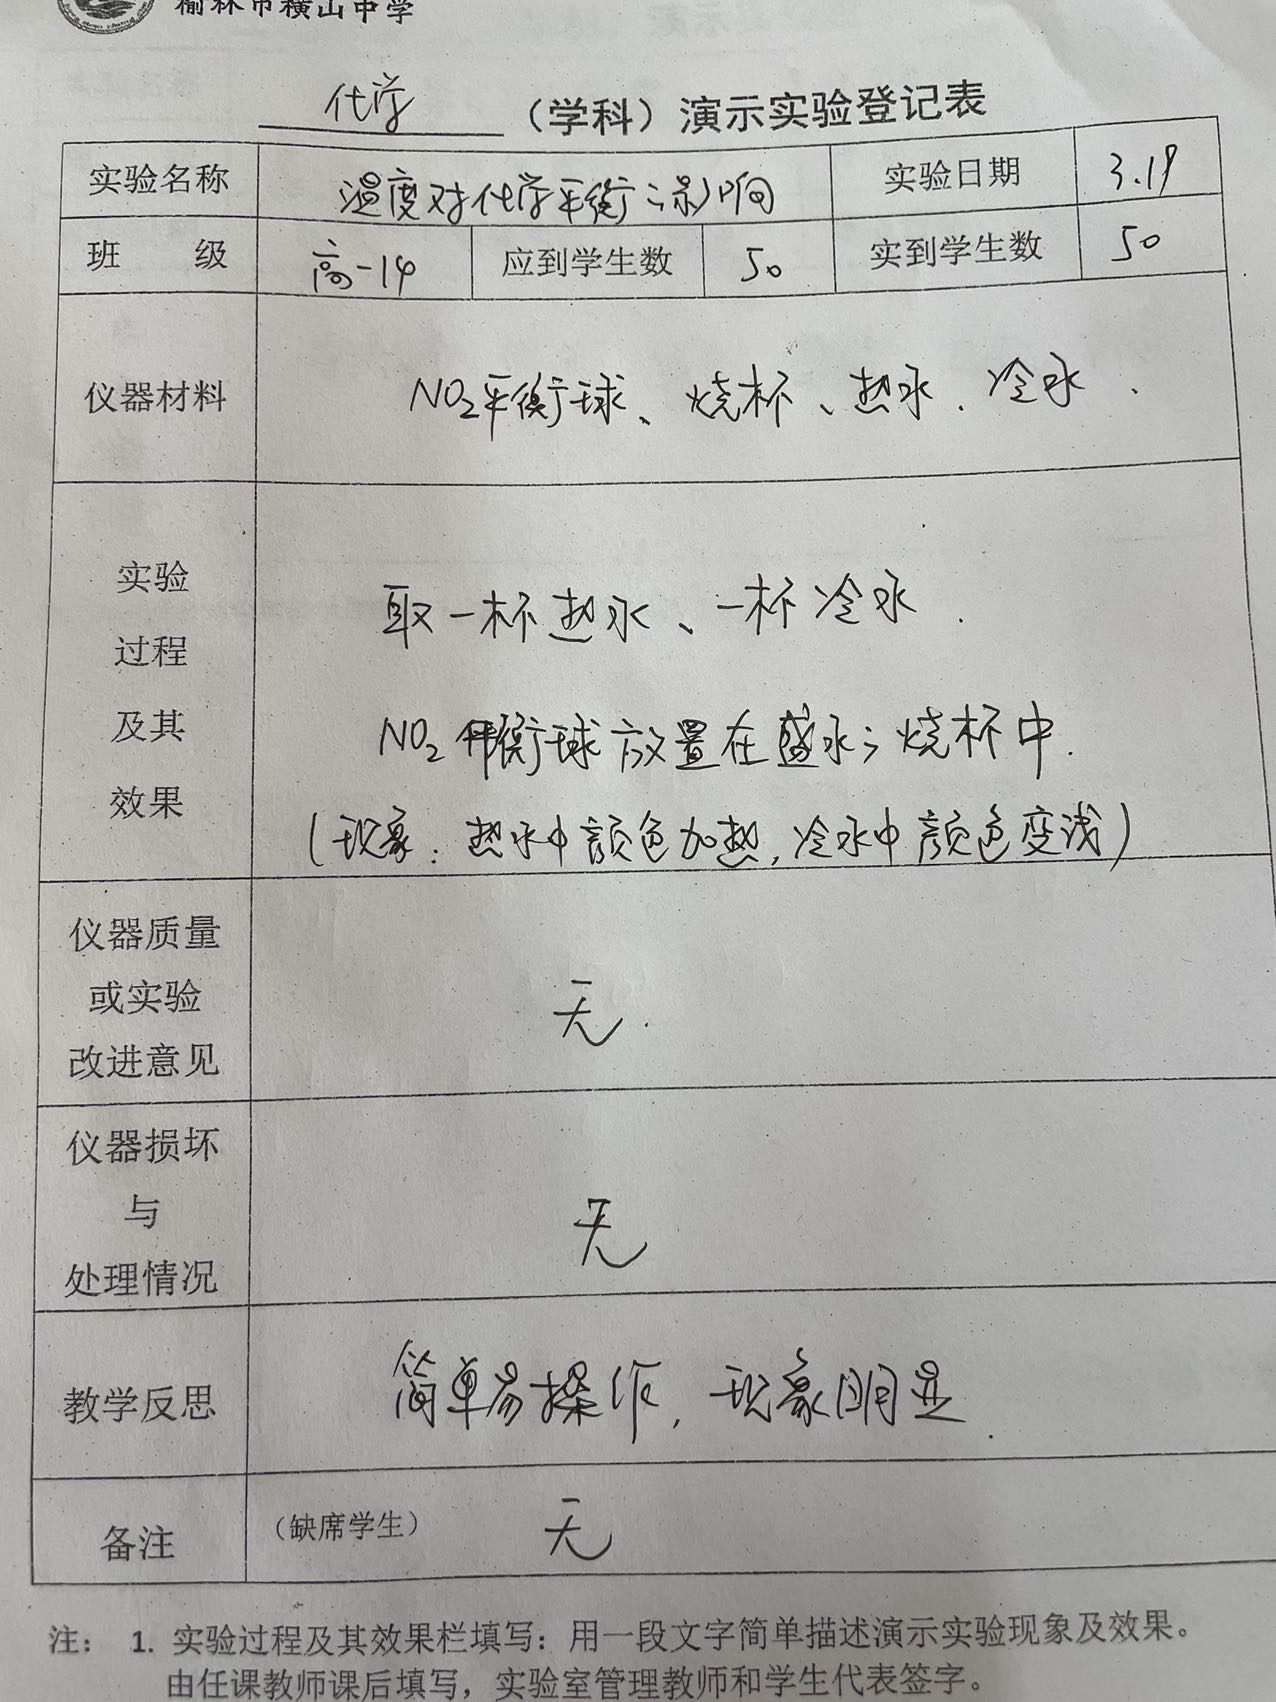 榆林市横山中学
化学（学科）演示实验登记表
实验名称 温度对化学平衡之影响 实验日期 3.19
班 级 高一14 应到学生数 50 实到学生数 50
仪器材料 NO₂平衡球、烧杯、热水、冷水.
实验
过程
及其
效果
取一杯热水、一杯冷水.
NO₂平衡球放置在盛水之烧杯中.
(现象：热水中颜色加热，冷水中颜色变浅)
仪器质量
或实验
改进意见
无.
仪器损坏
与
处理情况
无
教学反思 简单易操作，现象明显.
备注 （缺席学生） 无
注： 1. 实验过程及其效果栏填写：用一段文字简单描述演示实验现象及效果。
由任课教师课后填写，实验室管理教师和学生代表签字。